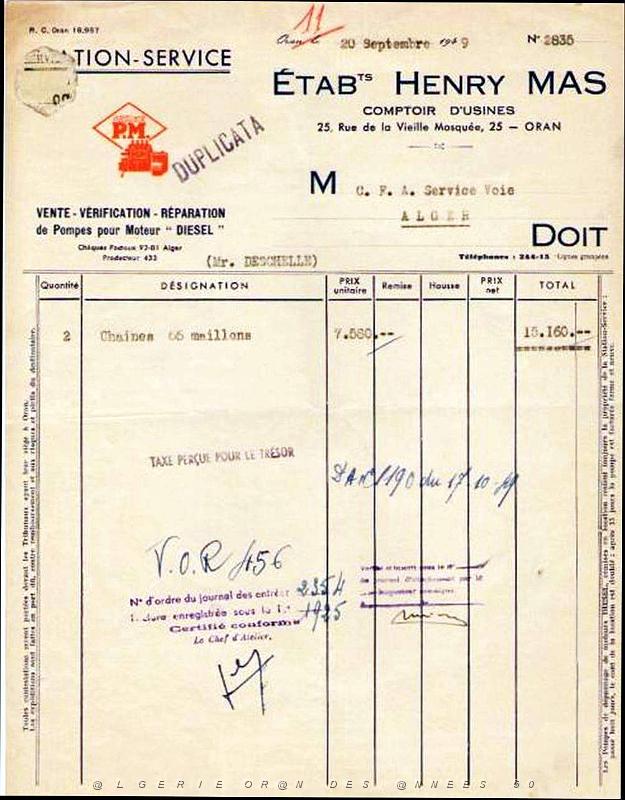 R. C. Oran 16.957
11
Oran, le 20 Septembre 1949 N° 2835
STATION-SERVICE
ÉTABTS HENRY MAS
COMPTOIR D'USINES
25, Rue de la Vieille Mosquée, 25 — ORAN
P.M.
DUPLICATA
M C. F. A. Service Voie
ALGER
VENTE - VÉRIFICATION - RÉPARATION
de Pompes pour Moteur " DIESEL "
Chèques Postaux 92-81 Alger
Producteur 433
(Mr. DESCHELLE)
DOIT
Téléphones : 244-15 Lignes groupées
Quantité DÉSIGNATION PRIX unitaire Remise Hausse PRIX net TOTAL
2 Chaines 66 maillons 7.580.-- 15.160.--
TAXE PERÇUE POUR LE TRÉSOR
190 du 17-10-49
V.O.R 456
N° d'ordre du journal des entrées 2354
facture enregistrée sous le N° 1925
Certifié conforme
Le Chef d'Atelier,
Toutes contestations seront portées devant les Tribunaux ayant leur siège à Oran.
Les expéditions sont faites en port dû, contre remboursement et aux risques et périls du destinataire.
Les Pompes de dépannage de moteurs DIESEL, remises en location restent toujours la propriété de la Station-Service ;
passé huit jours, le coût de la location est doublé ; après 15 jours la pompe est facturée ferme et neuve.
@LGERIE OR@N DES @NNEES 50